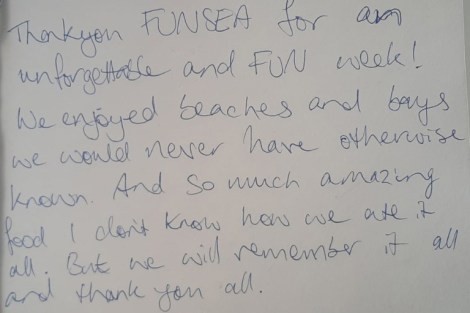 Thankyou FUNSEA for an
unforgettable and FUN week!
We enjoyed beaches and bays
we would never have otherwise
known. And so much amazing
food I don't know how we ate it
all. But we will remember it all
and thank you all.